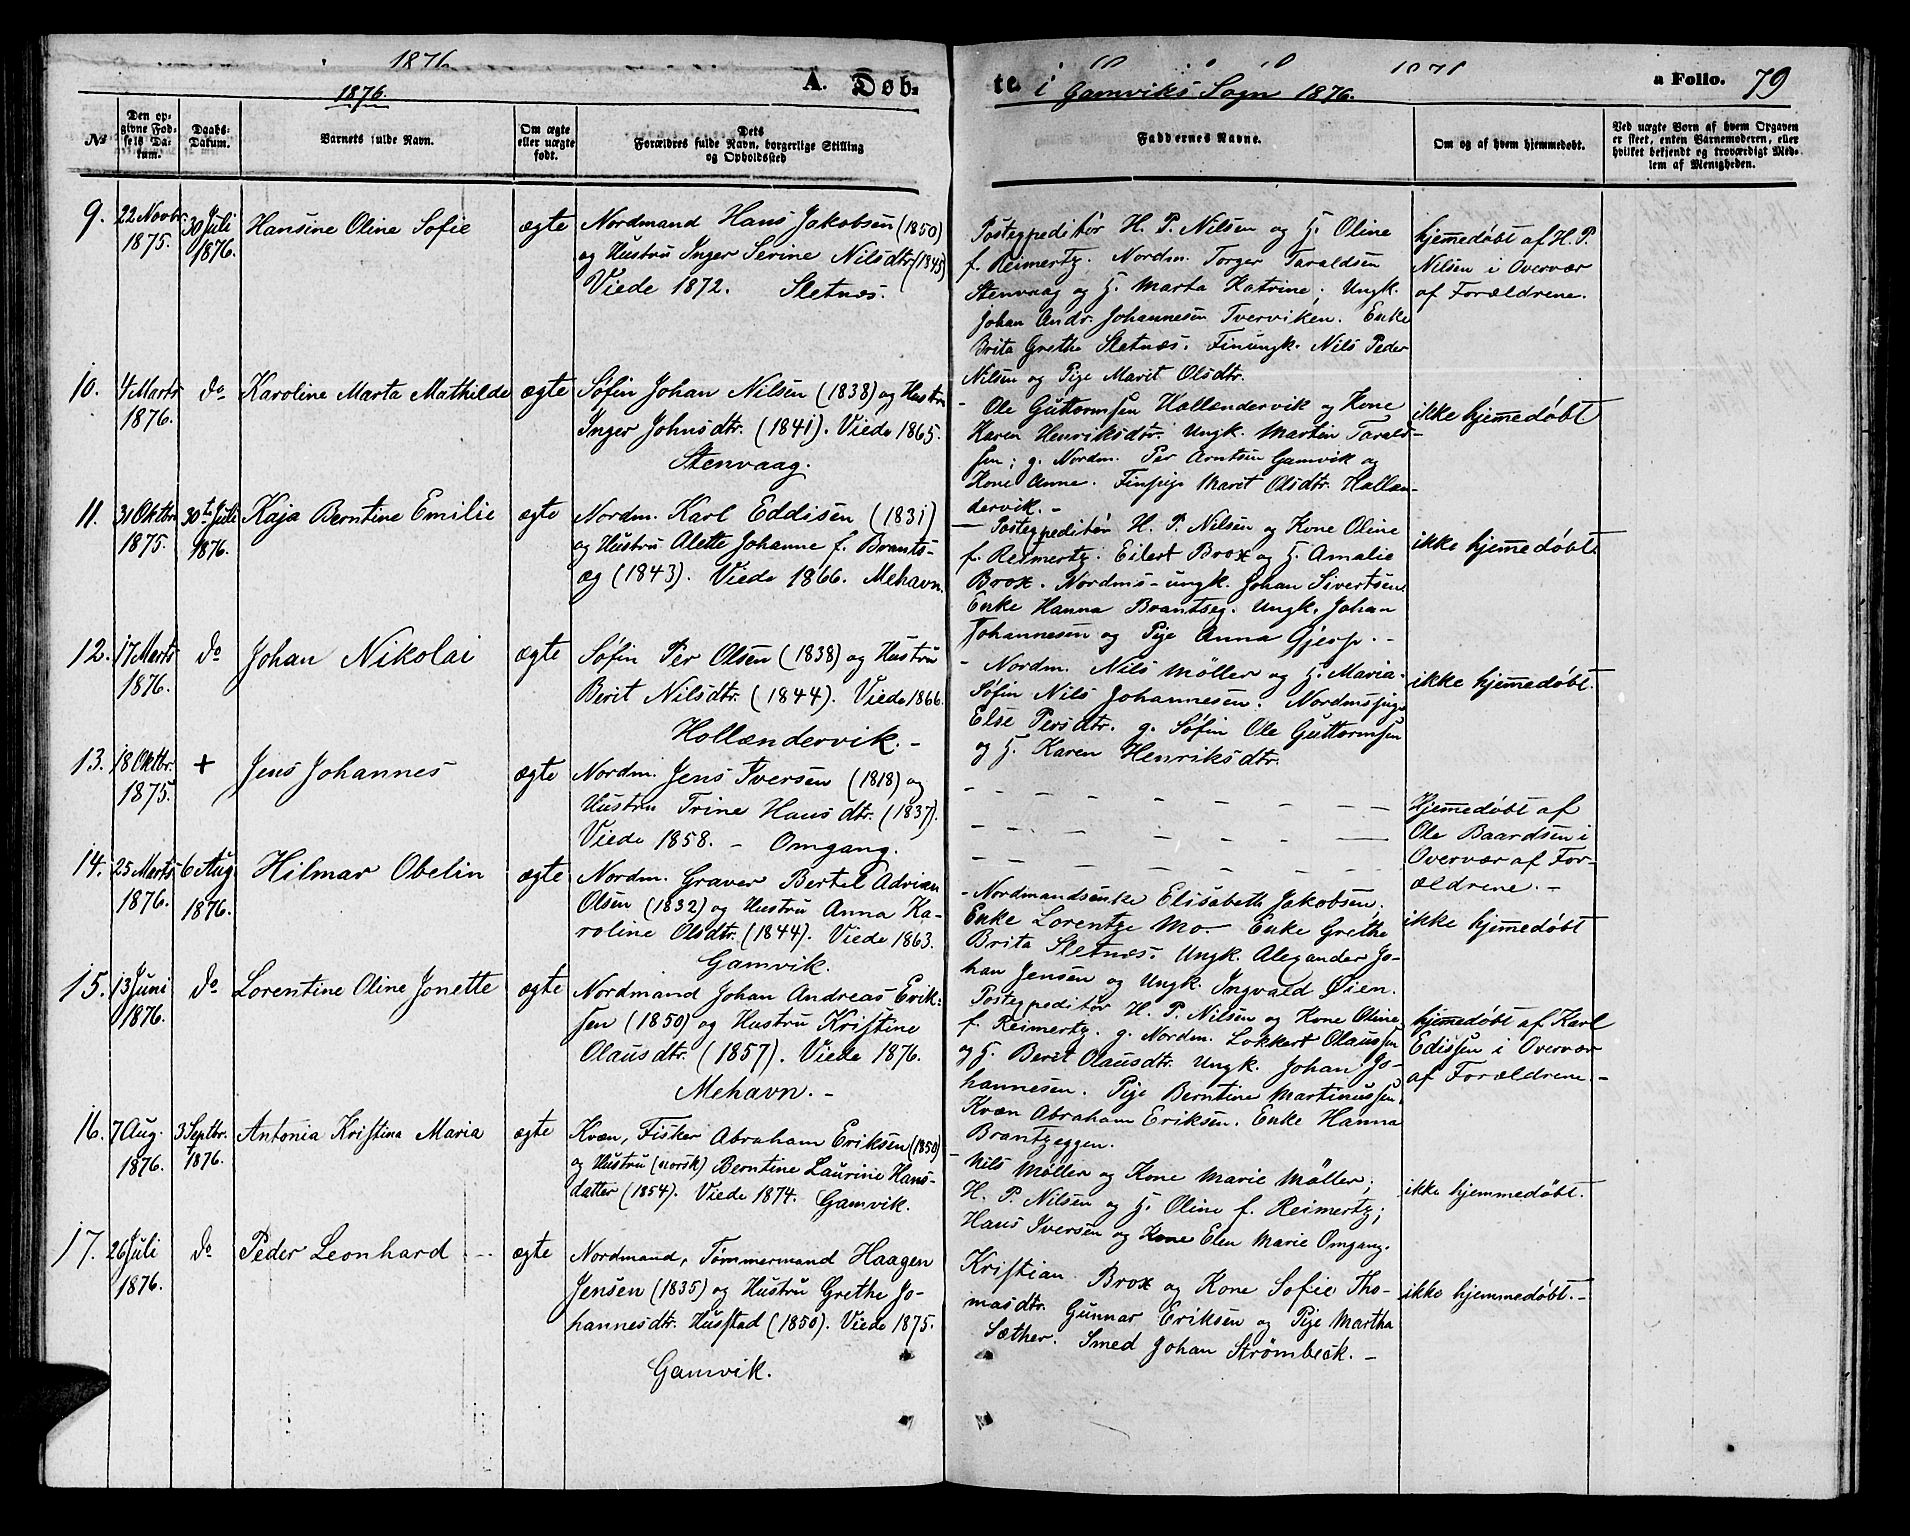 1876
1876.
A. Døb-
te i Gamviks Sogn 1876.
a Folio. 79
№
Den op-
givne Fød-
sels Da-
tum.
Daabs-
Datum.
Barnets fulde Navn.
Om ægte
eller uægte
født.
Dets
Forældres fulde Navn, borgerlige Stilling
og Opholdssted
Faddernes Navne.
Om og af hvem hjemmedøbt.
Ved uægte Børn af hvem Opgaven
er skeet, enten Barnemoderen, eller
hvilket bekjendt og troværdigt Med-
lem af Menigheden.
9.
22 Novbr.
1875.
30 Juli
1876.
Hansine Oline Sofie
ægte
Nordmand Hans Jakobsen (1850)
og Hustru Inger Serine Nilsdtr (1845)
Viede 1872. Sletnæs.
Postexpeditør H. P. Nilsen og H. Oline
f. Reimertz. Nordm. Torger Taraldsen
Stenvaag og H. Marta Katrine; Ungk.
Johan Andr. Johannesen Tverviken. Enke
Brita Grethe Sletnæs. Finungk. Nils Peder
Nilsen og Pige Marit Olsdtr.
hjemedøbt af H. P.
Nilsen i Overvær
af Forældrene.
10.
4 Marts
1876.
do
Karoline Marta Mathilde
ægte
Søfin Johan Nilsen (1838) og Hustru
Inger Johnsdtr. (1841). Viede 1865.
Stenvaag.
- Ole Guttormsen Hollændervik og Kone
Karen Henriksdtr. Ungk. Martin Tarald-
sen; g. Nordm. Per Arntsen Gamvik og
Kone Anne. Finpige Marit Olsdtr. Hollæn-
dervik. -
ikke hjemedøbt
11.
31 Oktbr
1875.
30t Juli
1876.
Kaja Berntine Emilie
ægte
Nordm. Karl Eddisen (1831)
og Hustru Alette Johanne f. Brants-
æg (1843). Viede 1866. Mehavn.
- Postexpeditør H. P. Nilsen og Kone Oline
f. Reimertz. Eilert Brox og H. Amalie
Brox. Nordms-ungk. Johan Sivertsen.
Enke Hanna Brantseg. Ungk. Johan
Johannesen og Pige Anna Gjesp. -
ikke hjemedøbt.
12.
17 Marts
1876.
do
Johan Nikolai
ægte
Søfin Per Olsen (1838) og Hustru
Berit Nilsdtr. (1844). Viede 1866.
Hollændervik. -
- Nordm. Nils Møller og H. Maria.
Søfin Nils Johannesen. Nordmspige
Else Persdtr. g. Søfin Ole Guttormsen
og H. Karen Henriksdtr.
ikke hjemedøbt.
13.
18 Oktbr.
1875.
+
Jens Johannes
ægte
Nordm. Jens Iversen (1818) og
Hustru Trine Hansdtr. (1837).
Viede 1858. - Omgang.
- - - - - - - - -
- - - - - - - -
- - - - - - - - -
Hjemedøbt af
Ole Baardsen i
Overvær af For-
ældrene. -
14.
25 Marts
1876.
6 Aug.
1876.
Hilmar Obelin
ægte
Nordm. Graver Bertel Adrian
Olsen (1832) og Hustru Anna Ka-
roline Olsdtr. (1844). Viede 1863.
Gamvik.
- Nordmandsenke Elisabeth Jakobsen,
Enke Lorentze Mo. - Enke Grethe
Brita Sletnæs. Ungk. Alexander Jo-
han Jensen og Ungk. Ingvald Øien.
ikke hjemedøbt
15.
13 Juni
1876.
do
Lorentine Oline Jonette
ægte
Nordmand Johan Andreas Erik-
sen (1850) og Hustru Kristine
Olausdtr. (1857). Viede 1876.
Mehavn. -
Postexpeditør H. P. Nilsen og Kone Oline
f. Reimertz. g. Nordm. Lokkert Olaussen
og H. Berit Olausdtr. Ungk. Johan Jo-
hannesen. Pige Berntine Martinussen.
Kvæn Abraham Eriksen. Enke Hanna
Brantzeggen.
hjemedøbt af Karl
Edissen i Overvær
af Forældrene. -
16.
7 Aug.
1876.
3 Septbr.
1876.
Antonia Kristina Maria
ægte
Kvæn, Fisker Abraham Eriksen (1850)
og Hustru (norsk) Berntine Laurine Hans-
datter (1854). Viede 1874. Gamvik.
- Nils Møller og Kone Marie Møller;
H. P. Nilsen og H. Oline f. Reimertz;
Hans Iversen og Kone Elen Marie Omgang.
ikke hjemmedøbt.
17.
26 Juli
1876.
do
Peder Leonhard - -
ægte
Nordmand, Tømmermand Haagen
Jensen (1835) og Hustru Grethe Jo-
hannesdtr. Husstad (1850). Viede 1875.
Gamvik.
Kristian Brox og Kone Sofie Tho-
masdtr. Gunnar Eriksen og Pige Martha
Sæther. Smed Johan Strømbeck. -
ikke hjemmedøbt. -